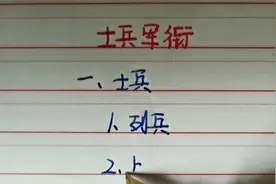 士兵军衔
一、士兵
1、列兵
2、